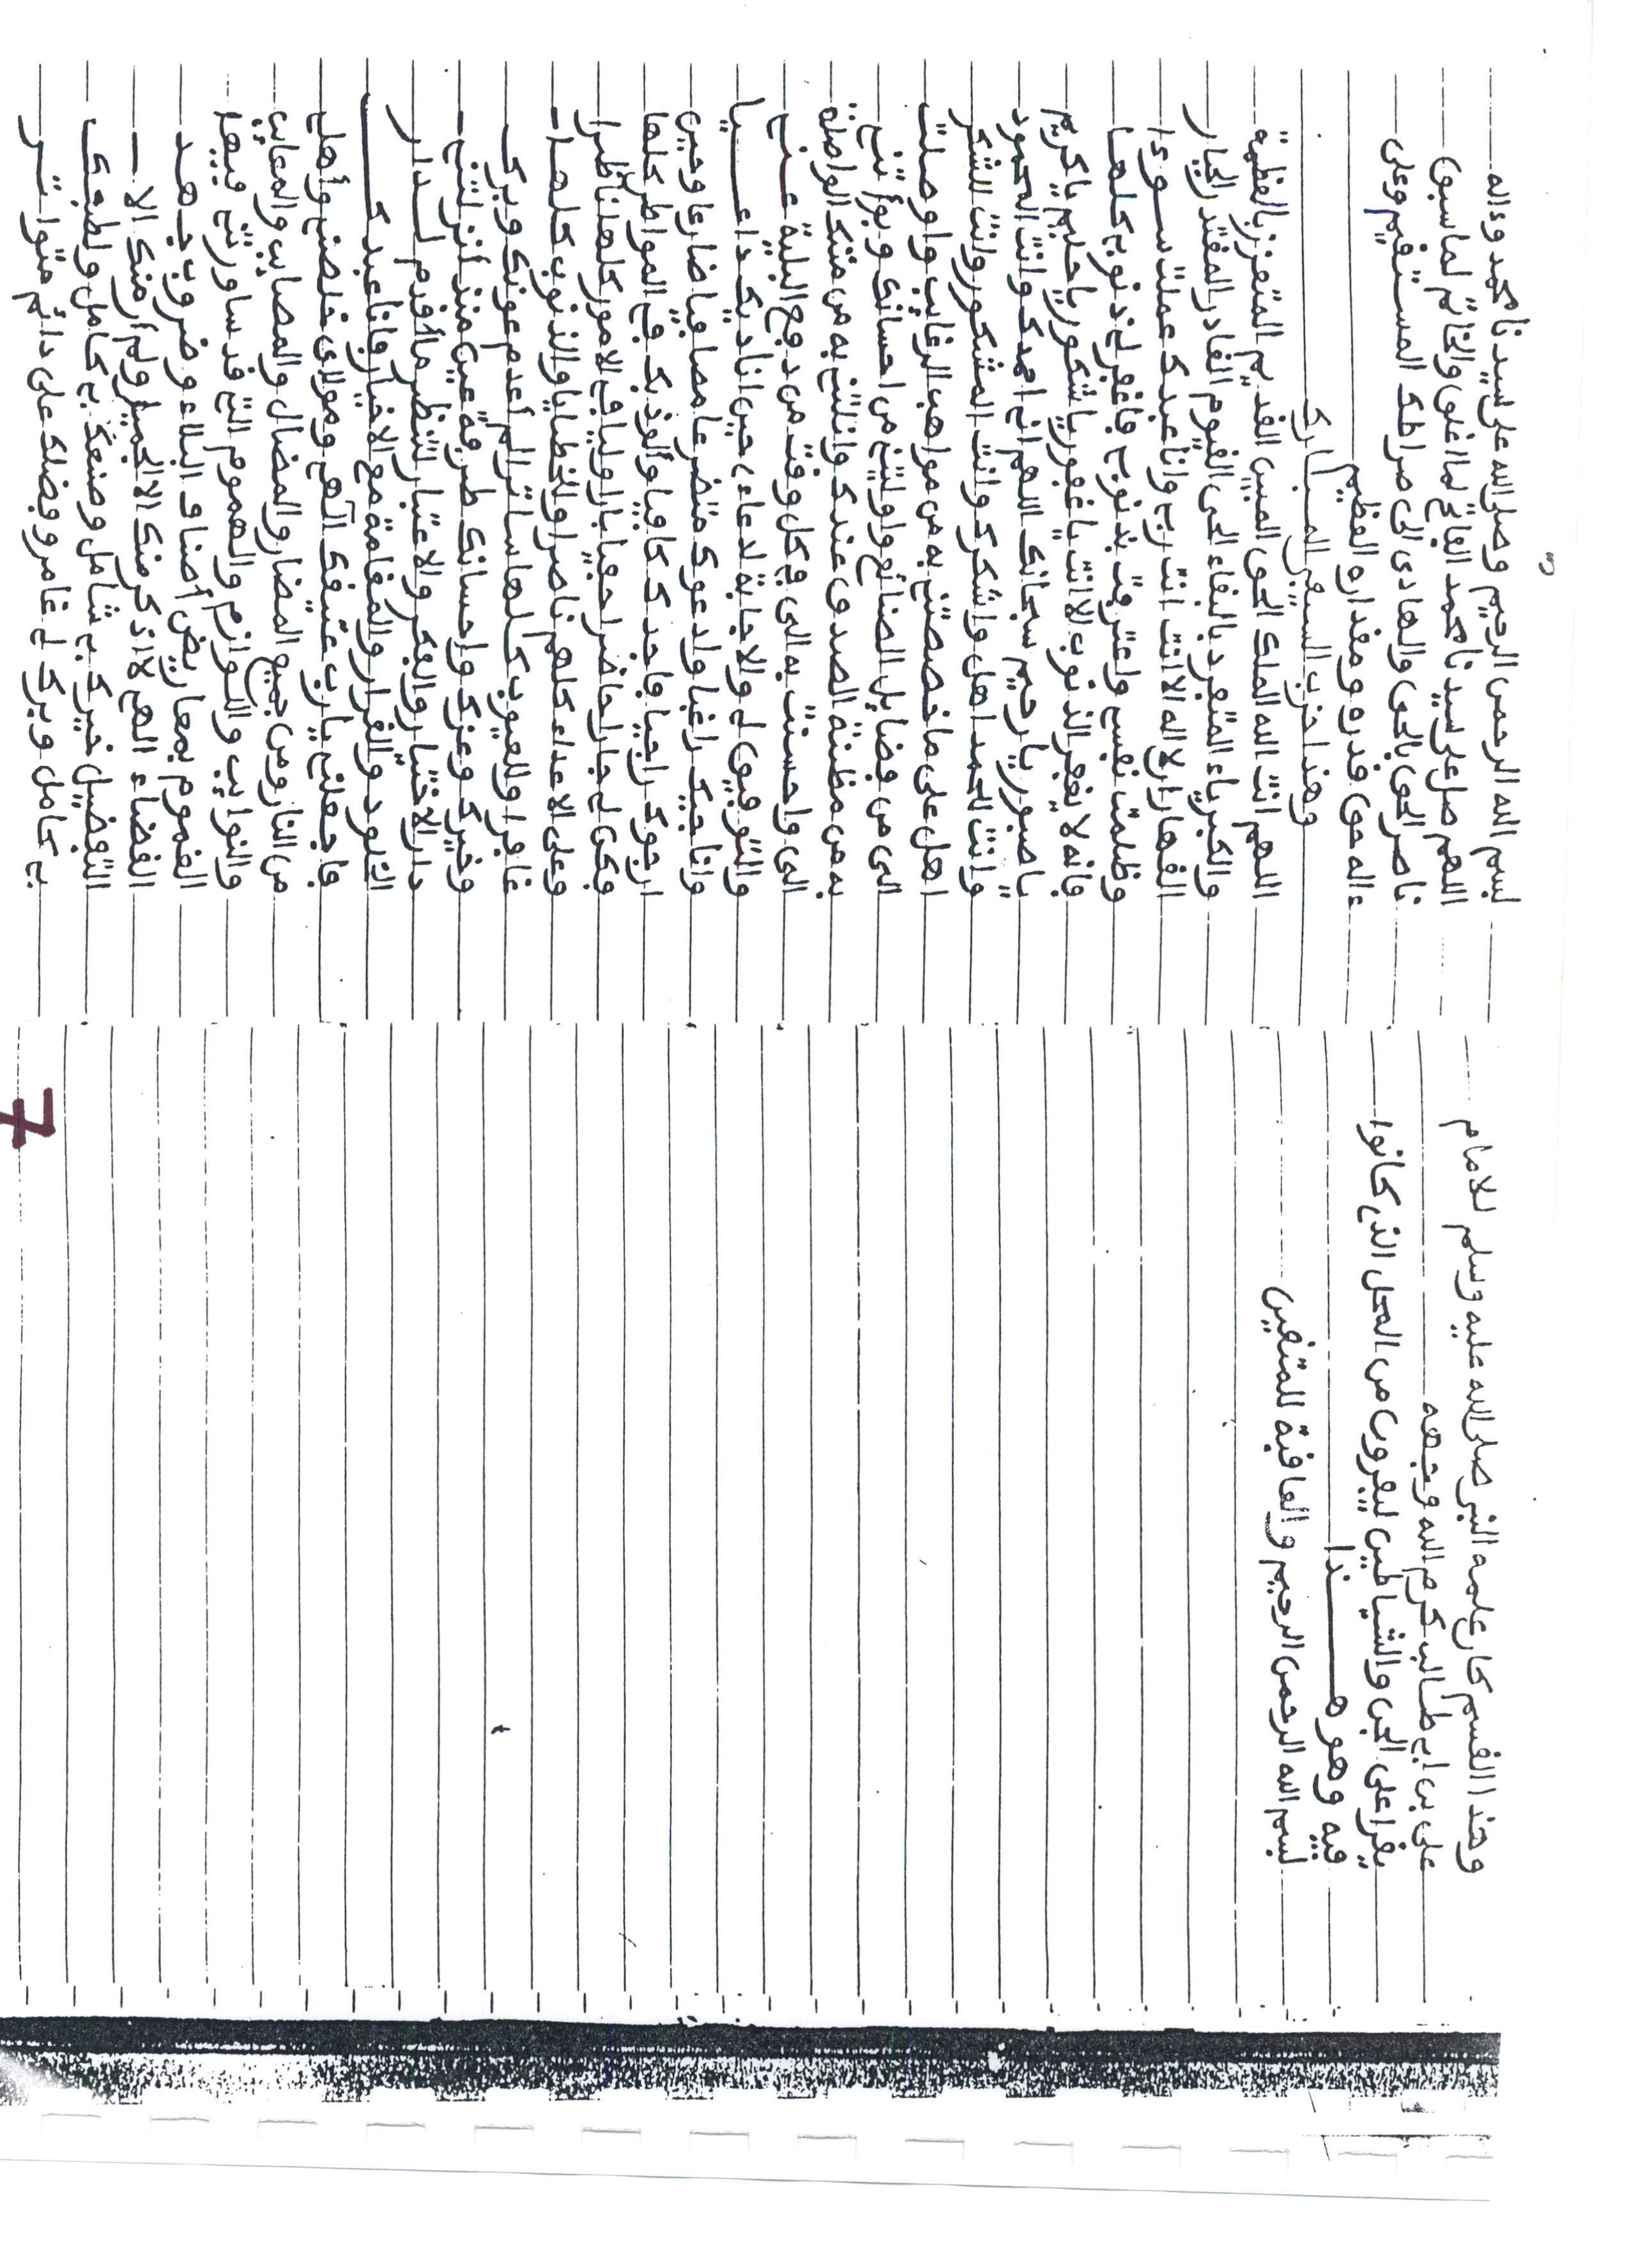 وهذا القسم كان علمه النبي صلى الله عليه وسلم للامام
على بن ابي طالب كرم الله وجهه
يقرا على الجن والشياطين ليفرون من المحل الذي كانوا
فيه وهو هذا
بسم الله الرحمن الرحيم والعاقبة للمتقين
بسم الله الرحمن الرحيم وصلى الله على سيدنا محمد وءاله
اللهم صل على سيدنا محمد الفاتح لما اغلق والخاتم لما سبق
ناصر الحق بالحق والهادى الى صراطك المستقيم وعلى
ءاله حق قدره ومقداره العظيم
وهذا حزب السيفي المبارك
اللهم انت الله الملك الحق المبين القديم المتعزز بالعظمة
والكبرياء المتفرد بالبقاء الحى القيوم القادر المقتدر الجبار
القهار لا اله الا انت انت ربي وانا عبدك عملت سوءا
وظلمت نفسي واعترفت بذنوبي فاغفر لي ذنوبي كلها
فانه لا يغفر الذنوب الا انت يا غفور يا شكور يا حليم يا كريم
يا صبور يا رحيم سبحانك اللهم اني احمدك وانت المحمود
وانت للحمد اهل واشكرك وانت المشكور وانت للشكر
اهل على ما خصصتني به من مواهب الرغائب واوصلت
الى من فضايل الصنائع واوليتني من احسانك وبوأتني
به من مظنة الصدق عندك وانلتني به من مننك الواصلة
الى واحسنت به الى في كل وقت من دفع البلية عني
والتوفيق لي والاجابة لدعاءي حين اناديك داعيا
واناجيك راغبا وادعوك متضرعا مصافيا ضارعا وحين
ارجوك راجيا فاجدك كافيا وألوذ بك في المواطن كلها
فكن لي جارا حاضرا حفيا بارا وليا في الامور كلها ناظرا
وعلى الاعداء كلهم ناصرا وللخطايا والذنوب كلها
غافرا وللعيوب كلها ساترا لم أعدم عونك وبرك
وخيرك وعزك واحسانك طرفة عين منذ أنزلتني
دار الاختبار والفكر والاعتبار لتنظر ما أقدم لدار
الخلود والقرار والمقامة مع الاخيار فانا عبدك
فاجعلني يارب عتيقك الاهي ومولاى خلصني وأهلى
من النار ومن جميع المضار والمضال والمصايب والمعايب
والنوايب واللوازم والهموم التي قد ساورتني فيها
الغموم بمعاريض أصناف البلاء وضروب جهد
القضاء الهي لا اذكر منك الا الجميل ولم أر منك الا
التفضيل خيرك لي شامل وصنعك بي كامل ولطفك
بي كامل وبرك لي غامر وفضلك على دائم متواتر
7